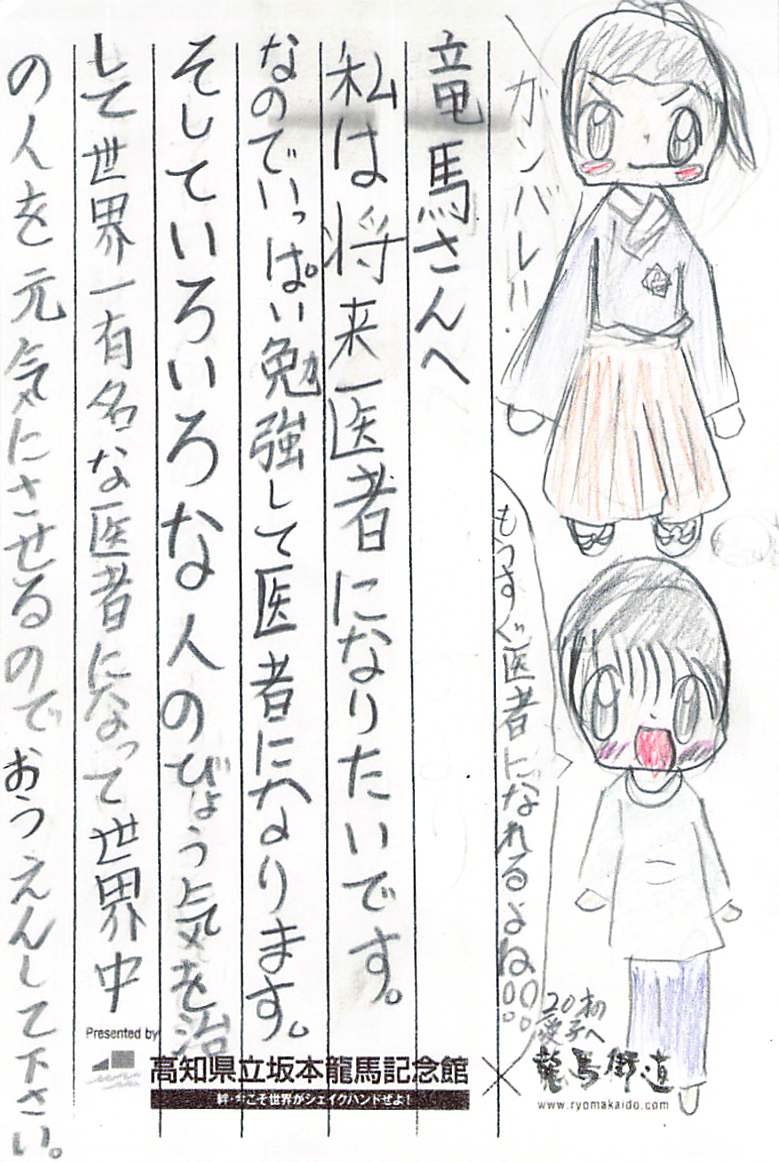 ガンバレ!!
もうすぐ医者になれるよね!!
竜馬さんへ
私は将来医者になりたいです。
なのでいっぱい勉強して医者になります。
そしていろいろな人のびょう気を治
して世界一有名な医者になって世界中
の人を元気にさせるのでおうえんして下さい。
Presented by
高知県立坂本龍馬記念館
こそ世界がシェイクハンドぜよ!
×
龍馬街道
www.ryomakaido.com